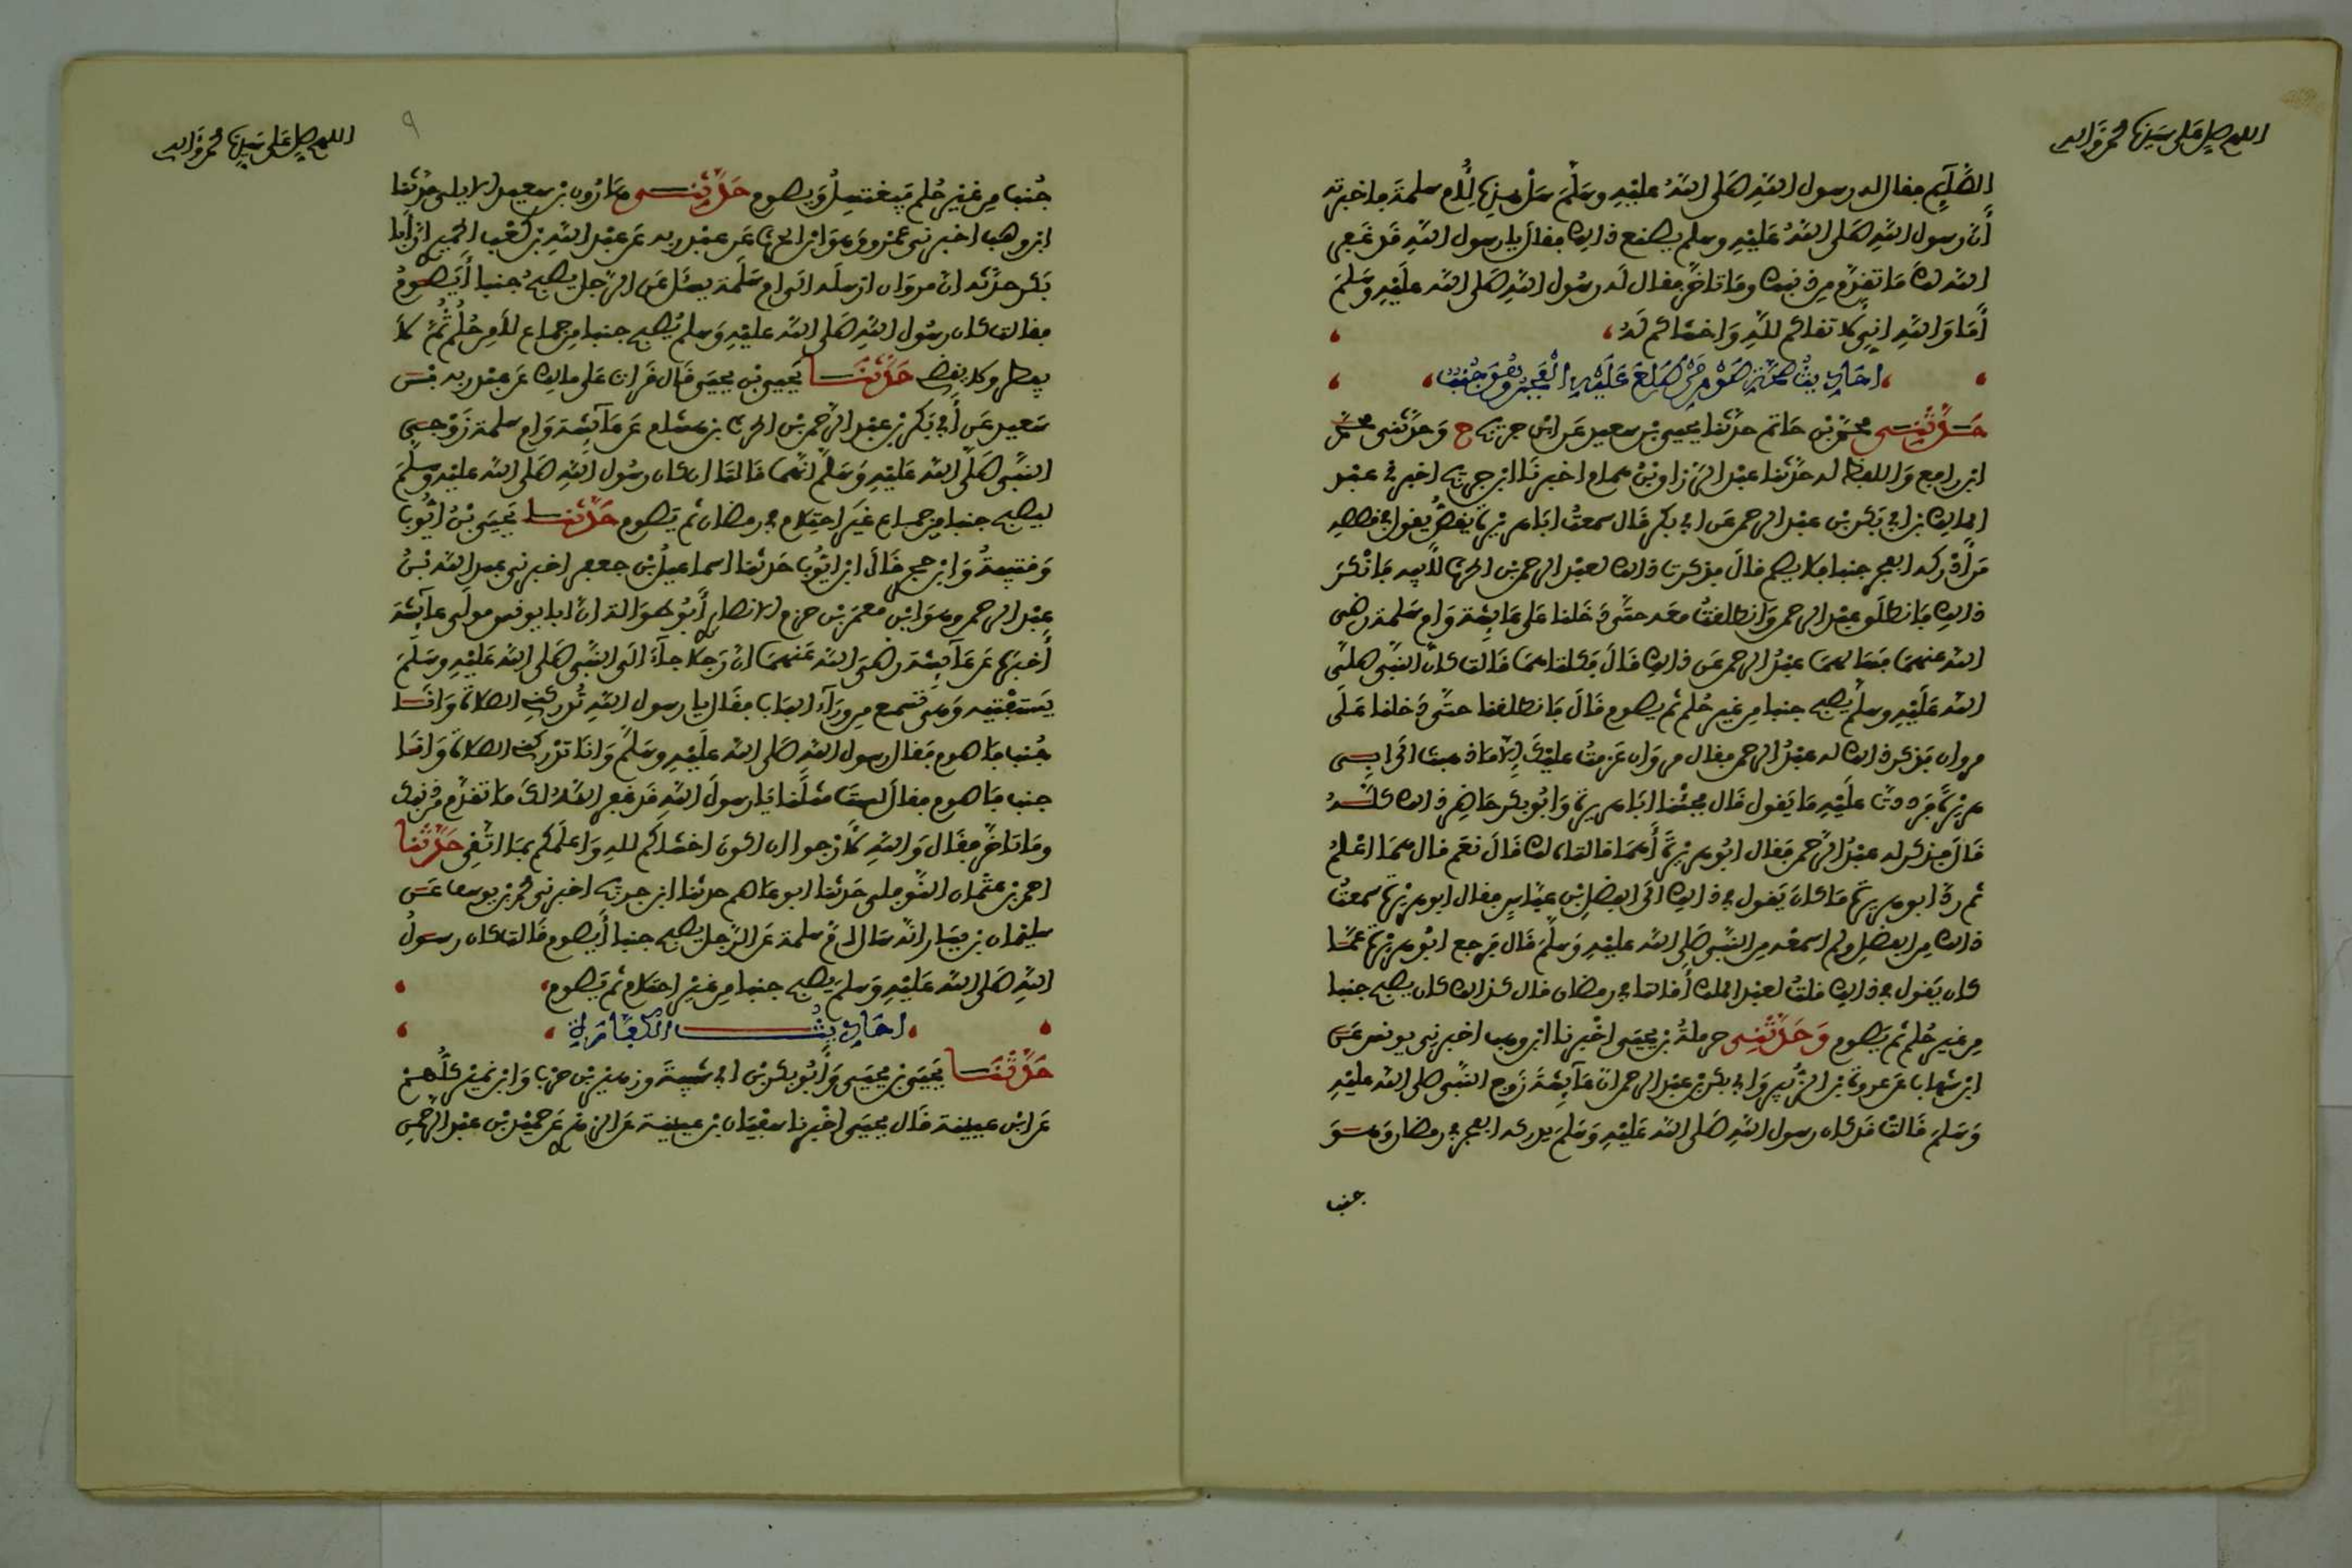 اللهم صل على سيدنا محمد وآله
الصَّآئِم فقال له رسول الله صَلى اللهُ عليْهِ وسَلَّمَ سَلْ هذِه لِأُم سلمة فأخبرته
أَن رسول اللهِ صَلى اللهُ عَليْهِ وسلم يصنع ذالك فقال يا رسول اللهِ قد غفر
الله لك مَا تقدّم من ذنبك ومَا تأخّر فقال له رسُول اللهِ صَلى الله عليْهِ وَسَلمَ
أَمَا وَاللهِ إنِّي لأتقاكم للهِ وَأخشاكم لَهُ
أحاديث صحة صوم من طلع عليه الفجر وهو جنب
حَدَّثَنِي محمّد بْن حَاتم حدّثنا يحيى بْن سعيد عَن ابْن جريج ح وَحدّثني محمّد
ابن رافع وَاللفظ له حدّثنا عبْد الرزاق بْن همام أخبرنَا ابن جريج أخبرني عبْد
الملك بن أبي بَكر بْن عبْد الرحمن عَن أبي بكر قَال سمعتُ أبَا هريْرة يَقصُّ يقول في قصصه
مَن أَدْركه الفجر جنبا فلا يصم قالَ فذكرت ذالك لعبْد الرحمن بْن الحرث لأبيه فَأنْكرَ
ذالك فَانطلق عبْد الرحمن وَانطلقتُ معَه حتَّى دَخلنا عَلى عَائِشة وَأم سَلمة رضي
الله عنهمَا فسَألهمَا عبْدُ الرحمن عَن ذالك قَالَ فَكلتاهمَا قَالت كانَ النبِّي صلى
الله عَلَيْهِ وسلَّم يصبح جنبا من غير حُلم ثم يصوم قَالَ فَانطلقنا حتَّى دَخلنا عَلَى
مروان فذكر ذالك له عبْدُ الرحمن فقال مروَان عَزمتُ عليْكَ إلّا مَا ذهبت إلَى أبي
هريْرَة فرددتَ علَيْهِ مَا يَقول قَال فجئْنا أبَا هريرة وَأبُو بكر حَاضِر ذالك كلّهُ
قَالَ فذكر له عبْدُ الرَّحمن فقال أبُو هريْرَة أَهمَا قالتَاه لك قَالَ نعَم قال همَا أعْلمُ
ثم ردّ أبو هريرة مَا كانَ يَقول في ذالك إلَى الفضلِ بْن عبّاسٍ فقال أبو هريْرة سمعتُ
ذالك مِن الفضلِ ولم أسمعْه مِن النبِّي صَلى الله عليْهِ وَسَلَّمَ قَال فرجع أبُو هريْرة عَمَّا
كان يَقول في ذالك قلتُ لعبْد الملك أَقالتا في رمضان قال كذالك كان يصبح جنبا
من غير حُلم ثم يَصوم وَحَدَّثَنِي حرملةُ بْن يحيَى أخْبرنا ابن وهب أخبرني يونس عَن
ابن شهاب عَن عروَة بْن الزُّبير وَأبي بكر بْن عبْد الرحمن أنّ عَآئِشَةَ زَوج النبِّي صلى الله عليْهِ
وَسَلمَ قَالتْ قد كان رسول اللهِ صَلى الله عَليْهِ وَسَلمَ يدركه الفجر في رمضان وَهوَ
جنبا
اللهم صل على سيدنا محمد وآله
٩
جُنب مِن غيْرِ حُلم فيغتسِلُ وَيصوم حَدَّثَنِي هَارُون بْن سعيد الأيلي حدّثنا
ابن وهب أخبرني عمْرو وَهوَ ابْن الحرث عَن عبْد ربه عَن عبْد اللهِ بْن كعْب الحميري أنّ أَبا
بَكر حدّثه أنّ مروَان أرْسلَه إلَى أم سَلَمة يسْأل عَن الرّجل يصبحُ جُنبا أَيَصُومُ
فقالت كان رسُول اللهِ صَلى الله عليْهِ وَسلم يُصبح جنبا من جماع لا مِن حُلُم ثُمّ لَا
يفطر وَلا يقضي حَدَّثَنَا يَحيى بْن يحيَى قَال قَرأت عَلى مالك عَن عبْد ربه بْن
سَعيد عَن أَبِي بَكر بْن عبْد الرَّحمن بْن الحرث بْن هشام عَن عَآئِشة وَأم سلمة زَوْجَي
النبِّي صَلَّى الله عَليْهِ وَسَلَّمَ أنّهمَا قَالتَا إن كان رسُول اللهِ صَلى الله عليْه وَسلَّمَ
ليصبح جنبا من جماع غيَر احتِلام في رمضان ثم يَصوم حَدَّثَنَا يَحيَى بْنُ أيُّوبَ
وَقتيبةُ وَابن حجر قَالَ ابْن أيُّوب حَدثنا إسماعيلُ بْن جعفر أخبرني عبد الله بْنُ
عبْد الرحمن وهوَ ابْن معمَر بْن حزم الأنصاري أَبُو طوَالة أنّ أبا يونس مولَى عآئشة
أَخبرَه عَن عَآئِشَة رَضيَ الله عَنهمَا أنّ رَجلا جآءَ إلَى النبِّي صَلى الله عَليْهِ وسَلَّمَ
يَستفْتيه وَهي تسْمع من ورَآءِ البَاب فقال يا رسول اللهِ تُدركني الصلَاة وَأنَا
جُنب فَأصوم فقال رسول اللهِ صَلى الله علَيْهِ وسَلمَ وَأنَا تدْركني الصلَاة وَأنَا
جنب فَأصوم فقال لستَ مثلَنا يَا رسولَ اللهِ قد غفر اللهُ لك مَا تقدّم من ذنبك
ومَا تَأخّر فقَال وَاللهِ إنّي لأرْجو أن أكونَ أخشاكم للهِ وَأعلَمكم بمَا أتَّقي حَدَّثَنَا
أحمد بْن عثمَان النّوفلي حَدثنا أبو عَاصم حدثنا ابن جريج أخبرني محمد بْن يوسف عَن
سليْمان بْن يسَار أنّه سَأل أمّ سلمة عَن الرّجل يصبح جنبا أَيصوم قَالت كان رسولُ
اللهِ صَلى الله عَليْهِ وَسلمَ يصبح جنبا من غيْرِ احتلام ثم يَصوم
أحاديث الكفارة
حَدَّثَنَا يَحيَى بْن يحيَى وَأبُو بكر بْن أبي شيبةَ وزهيْر بْن حرْب وَابْن نميْر كلُّهمْ
عَن ابْن عيينة قَال يحيَى أخْبرنا سفيَان بْن عيينة عَن الزهري عَن حميْد بْن عبْد الرحمنِ